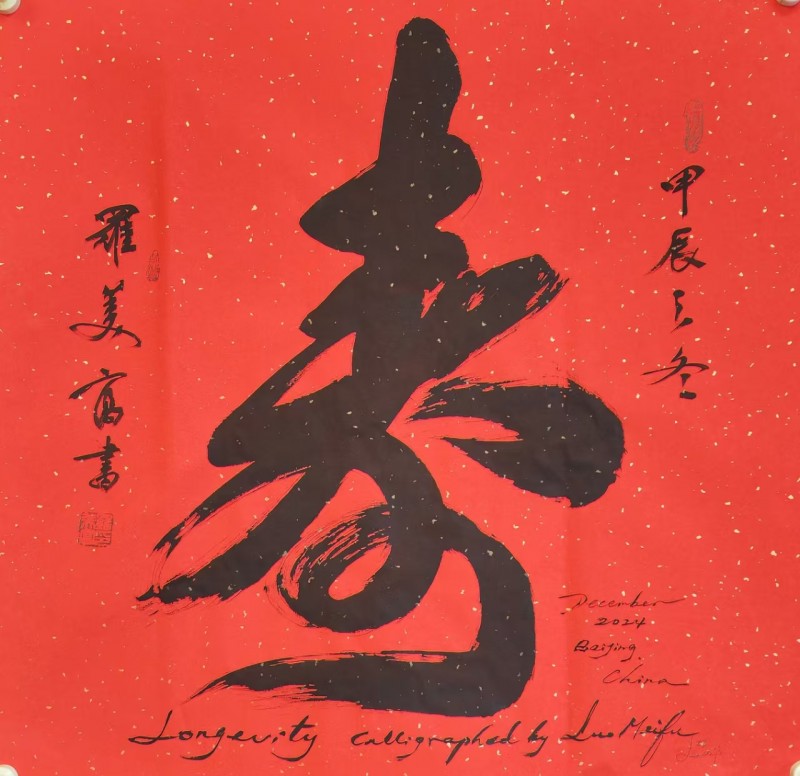 寿
甲辰之冬
羅美富書
December
2024
Beijing,
China
Longevity Calligraphed by Luo Meifu